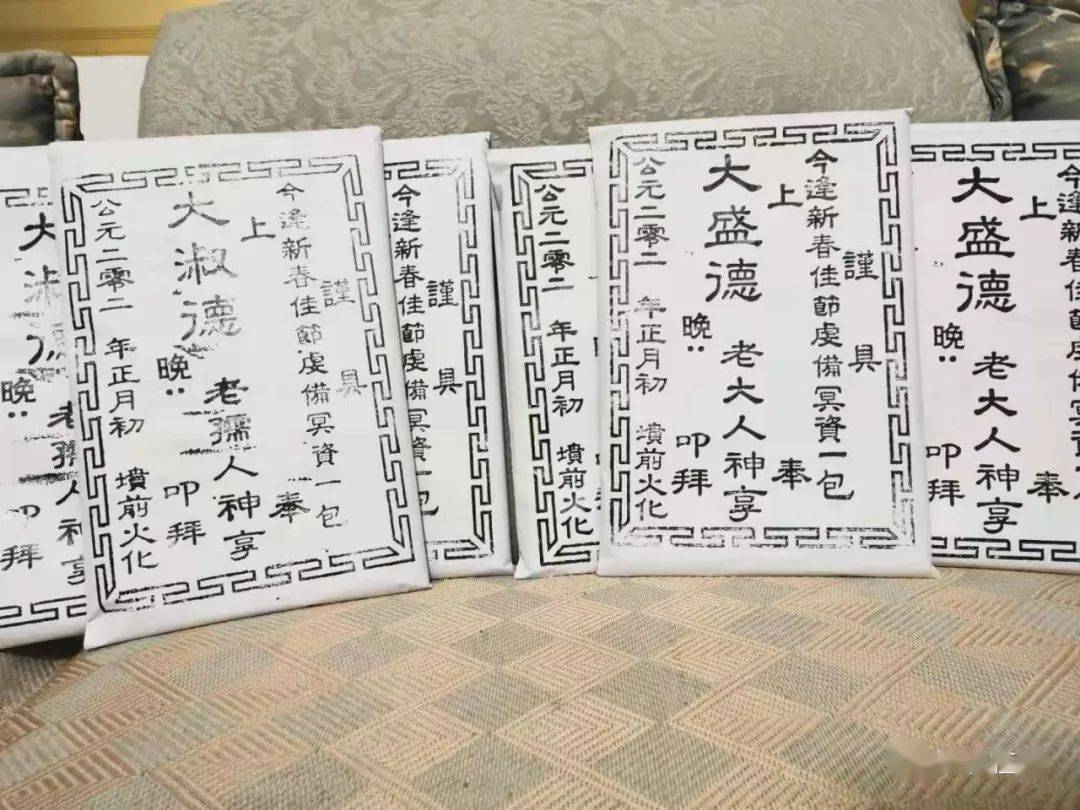 大淑德 老孺人神享
晚： 叩拜
謹具
今逢新春佳節虔備冥資一包
上 奉
大淑德 老孺人神享
晚： 叩拜
公元二零二 年正月初 墳前火化
謹具
今逢新春佳節虔備冥資一包
公元二零二 年正月初 墳前火化
謹具
今逢新春佳節虔備冥資一包
上 奉
大盛德 老大人神享
晚： 叩拜
公元二零二 年正月初 墳前火化
今逢新春佳節虔備冥
上 奉
大盛德 老大人神享
晚： 叩拜